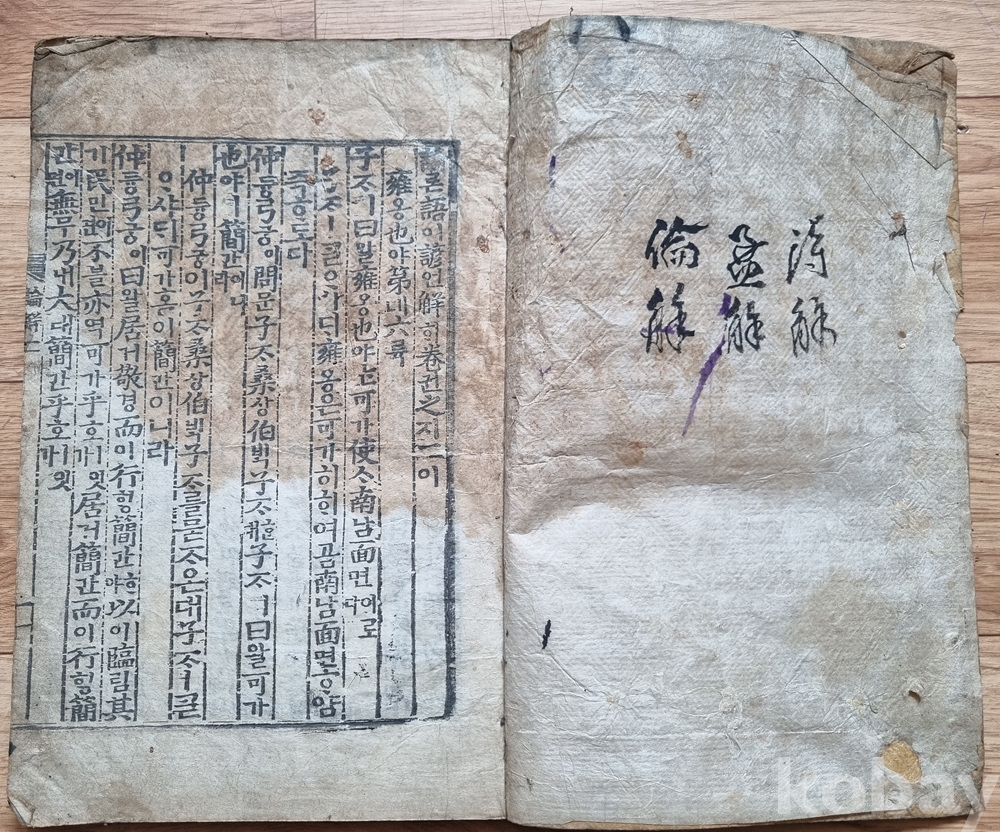 詩解
孟解
論解
論론語어諺언解ᄒᆡ卷권之지二이
雍옹也야第뎨六륙
子ᄌᆞㅣ曰왈雍옹也야ᄂᆞᆫ可가使ᄉᆞ南남面면이로다
子ᄌᆞㅣᄀᆞᆯᄋᆞ샤ᄃᆡ雍옹은可가히ᄒᆞ여곰南남面면ᄒᆞ얌
즉ᄒᆞ도다
仲듕弓궁이問문子ᄌᆞ桑상伯ᄇᆡᆨ子ᄌᆞ子ᄌᆞㅣ曰왈可가
也야ㅣ簡간이니라
仲듕弓궁이子ᄌᆞ桑상伯ᄇᆡᆨ子ᄌᆞ를묻ᄌᆞ온대子ᄌᆞㅣᄀᆞᆯ
ᄋᆞ샤ᄃᆡ可가홈이簡간이니라
仲듕弓궁이曰왈居거敬경而이行ᄒᆡᆼ簡간ᄒᆞ야以이臨림其
기民민이면不블亦역可가乎호ㅣ잇가居거簡간而이行ᄒᆡᆼ簡
간이면無무乃내大대簡간乎호ㅣ잇
論解二
kobay